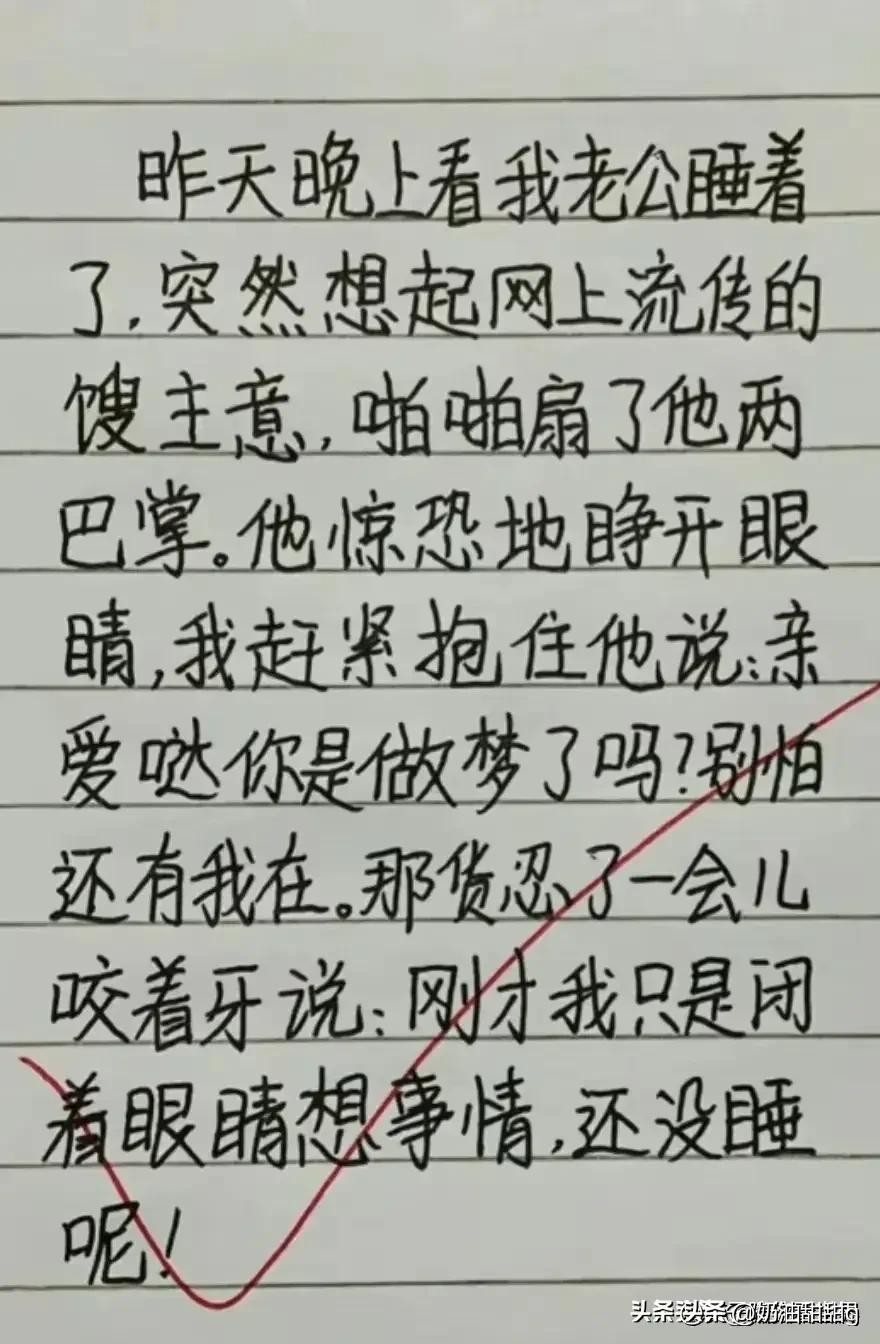 昨天晚上看我老公睡着
了,突然想起网上流传的
馊主意,啪啪扇了他两
巴掌。他惊恐地睁开眼
睛,我赶紧抱住他说:亲
爱哒你是做梦了吗?别怕
还有我在。那货忍了一会儿
咬着牙说:刚才我只是闭
着眼睛想事情,还没睡
呢!
头条